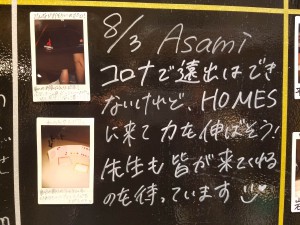 8/3 Asami
コロナで遠出はでき
ないけれど、HOMES
に来て力を伸ばそう!
先生も皆が来てくれる
のを待っています